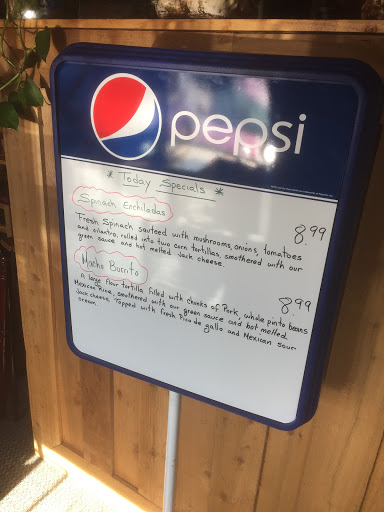 pepsi
* Today Specials *
Spinach Enchiladas
Fresh Spinach sauteed with mushrooms, onions, tomatoes 8.99
and cilantro, rolled into two corn tortillas, smothered with our
green sauce and hot melted Jack cheese.
Macho Burrito
A large flour tortilla filled with chunks of Pork, whole pinto beans 8.99
Mexican Rice, smothered with our green sauce and hot melted
Jack cheese. Topped with fresh Pico de gallo and Mexican sour
cream.